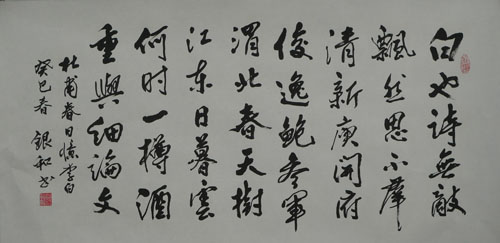 白也诗無敵
飄然思不羣
清新庾開府
俊逸鮑参軍
渭北春天樹
江东日暮雲
何时一樽酒
重與细論文
杜甫春日憶李白
癸巳春 银和书